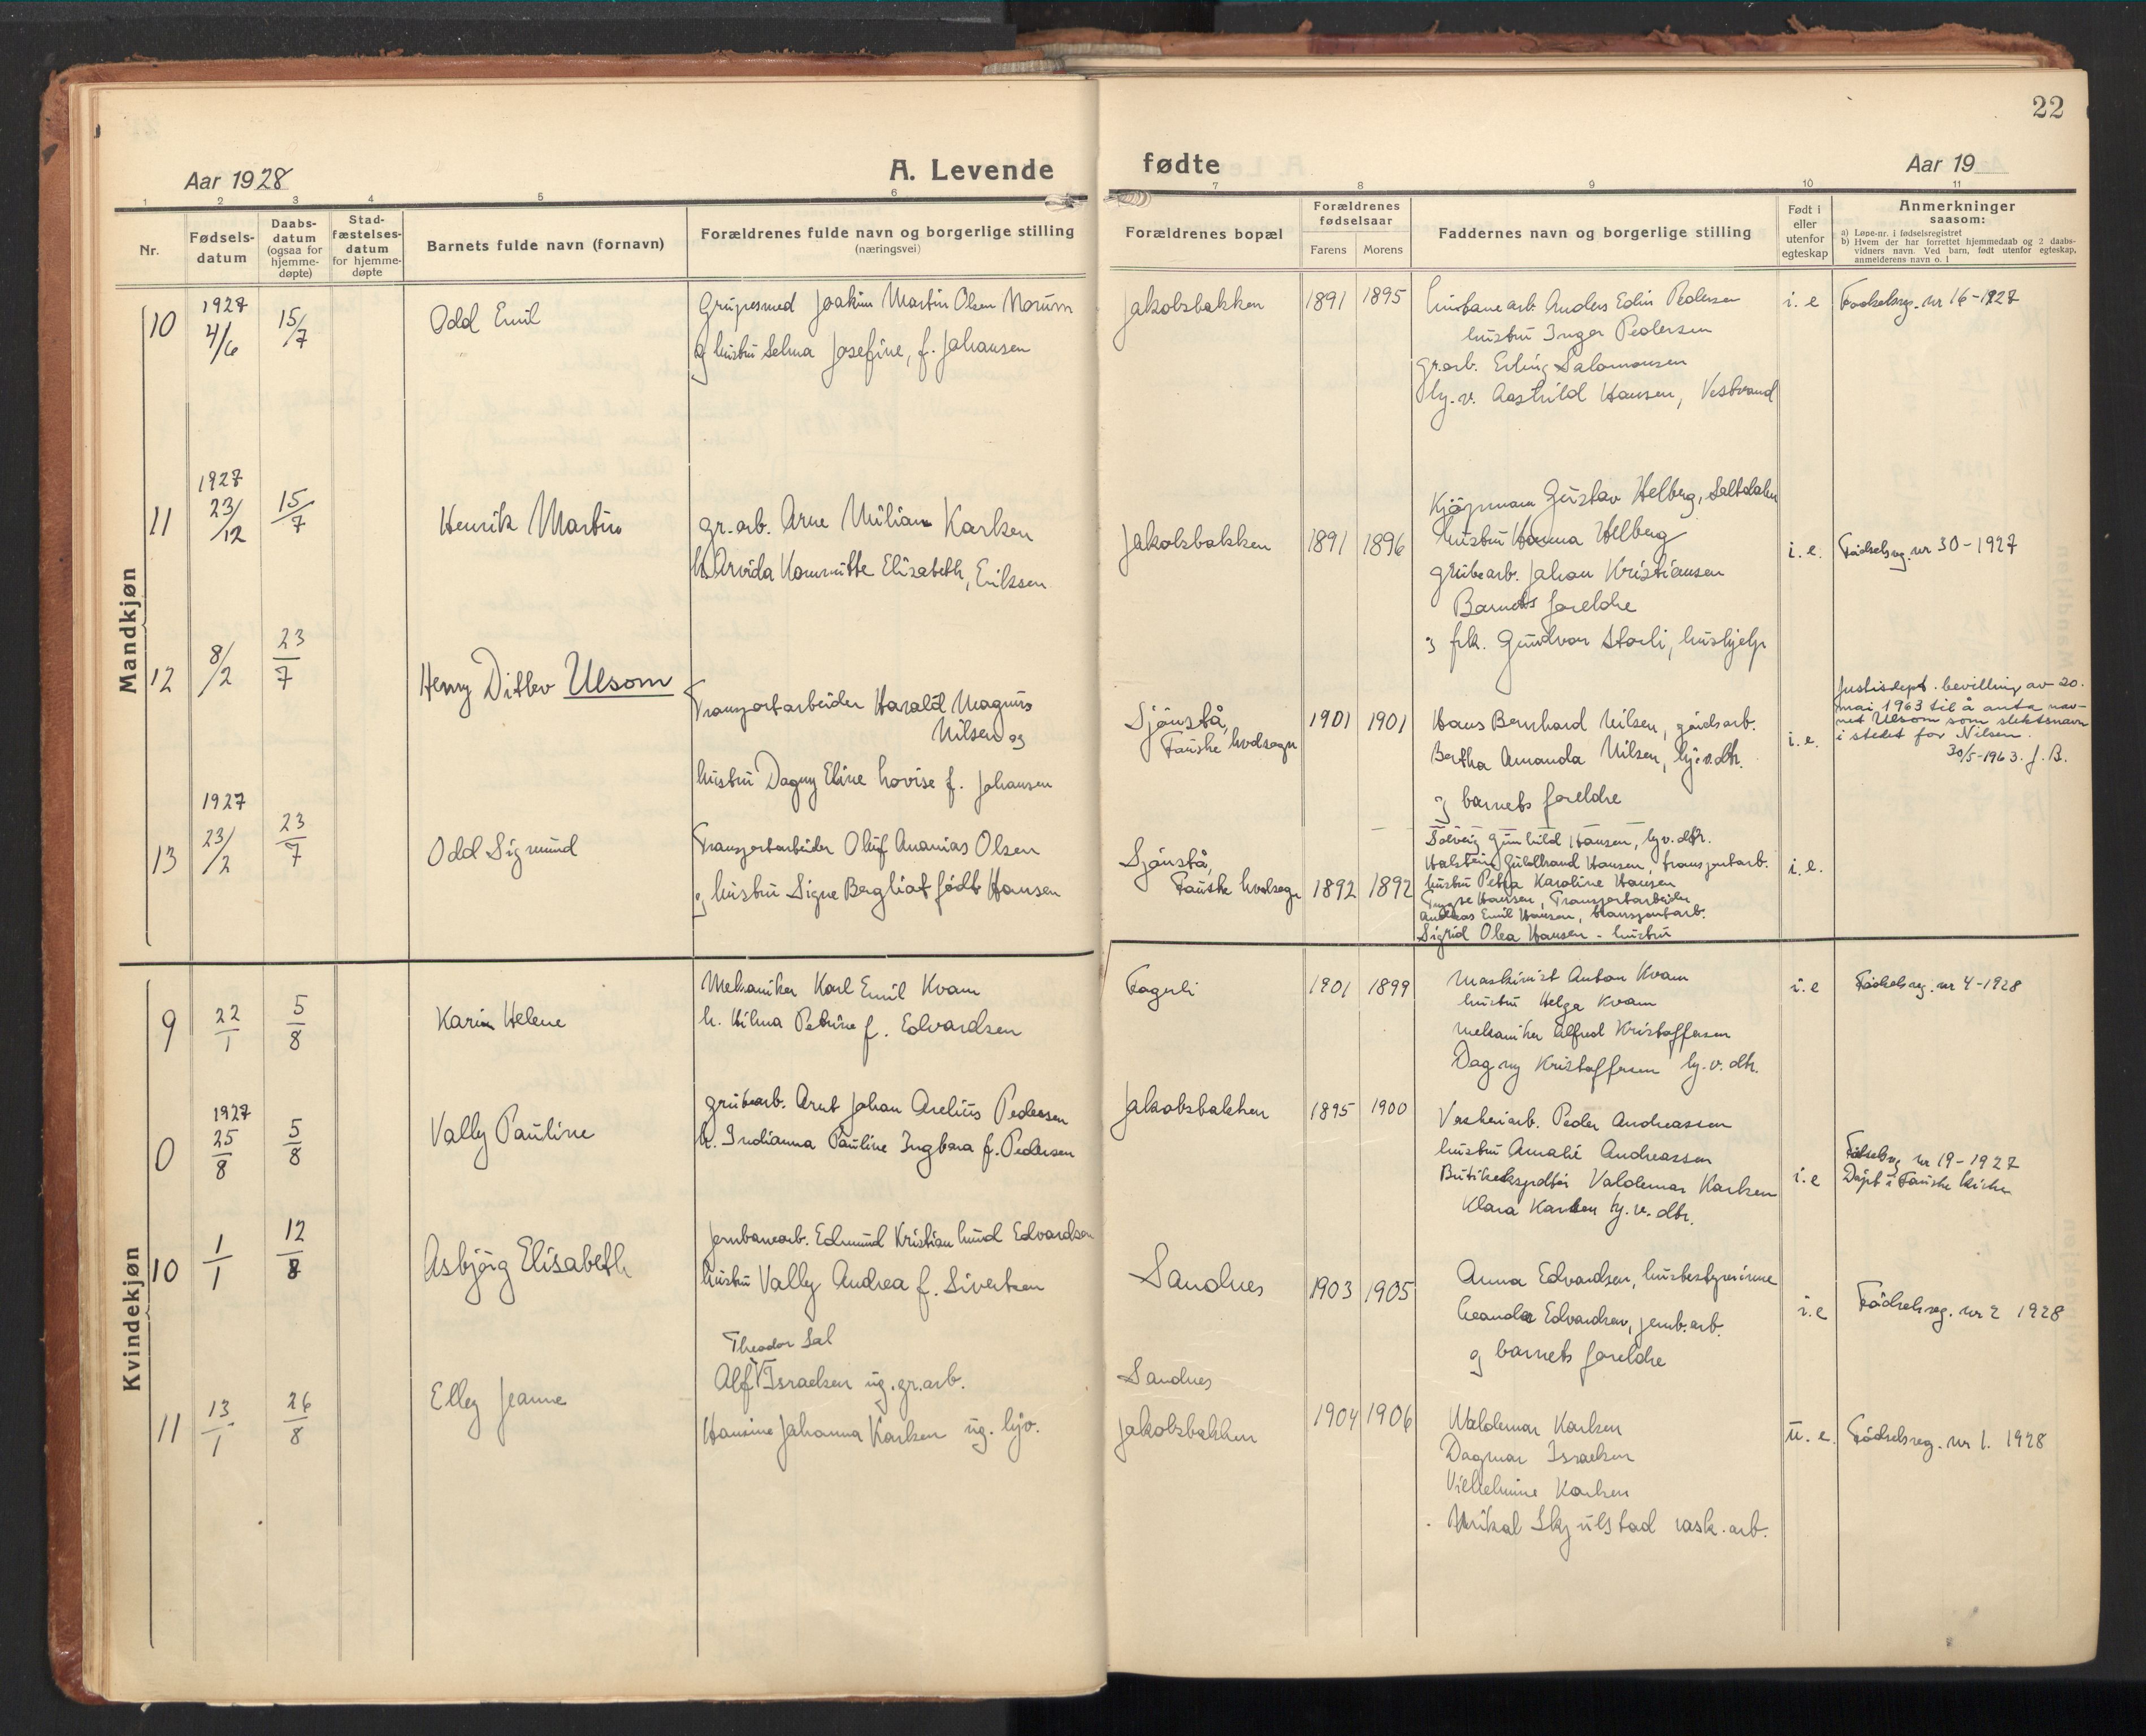 22
Aar 1928
A. Levende
fødte
Aar 19
1 2 3 4 5 6 7 8 9 10 11
Nr.
Fødsels-
datum
Daabs-
datum
(ogsaa for
hjemme-
døpte)
Stad-
fæstelses-
datum
for hjemme-
døpte
Barnets fulde navn (fornavn)
Forældrenes fulde navn og borgerlige stilling
(næringsvei)
Forældrenes bopæl
Forældrenes
fødselsaar
Farens Morens
Faddernes navn og borgerlige stilling
Født i
eller
utenfor
egteskap
Anmerkninger
saasom:
a) Løpe-nr. i fødselsregistret
b) Hvem der har forrettet hjemmedaab og 2 daabs-
vidners navn. Ved barn, født utenfor egteskap,
anmelderens navn o. l
Mandkjøn
10
1927
4/6
15/7
Odd Emil
Joakim Martin Olsen Norum
og hustru Selma Josefine, f. Johansen
Jakobsbakken
1891 1895
Anders Edin Pedersen
hustru Inger Pedersen
gr.arb. Erling Salomonsen
Hansen,
i. e
Fødselsreg. nr 16-1927
11
1927
23/12
15/7
Henrik Martin
gr. arb. Arne Milian Karlsen
h. Arvida Elisabeth, Eriksen
Jakobsbakken
1891 1896
Kjøpmann Gustav Helberg, Saltdalen
hustru Hanna Helberg
grubearb. Johan Kristiansen
Barnets foreldre
og frk. Gudvor Storli, hushjelp
i. e.
Fødselsreg. nr 30-1927
12
8/2
23/7
Henry Ditlev Ulsom
Transportarbeider Harald Magnus
Nilsen og
hustru Dagny Eline Lovise f. Johansen
Sjønstå,
Fauske hvdsogn
1901 1901
Hans Bernhard Nilsen, gårdsarb.
Bertha Amanda Nilsen, hj.v.dtr.
og barnets foreldre
i. e.
Justisdept. bevilling av 20.
mai 1963 til å anta nav-
net Ulsom som slektsnavn
i stedet for Nilsen.
30/5-1963. J. B.
13
1927
23/2
23/7
Odd Sigmund
Transportarbeider Oluf Ananias Olsen
og hustru Signe Bergliot født Hansen
Sjønstå,
Fauske hvdsogn
1892 1892
Solveig Gunhild Hansen, hj.v.dtr.
Halstein Guldbrand Hansen, transportarb.
hustru Petra Karoline Hansen
Hansen, Transportarbeider
Andreas Emil Hansen, transportarb.
Sigrid Olea Hansen - hustru
i. e.
Kvindekjøn
9
22/1
5/8
Karin Helene
Mekaniker Karl Emil Kvam
h. Hilma Petrine f. Edvardsen
Fagerli
1901 1899
Maskinist Anton Kvam
hustru Helga Kvam
mekaniker Alfred Kristoffersen
Dagny Kristoffersen hj. v. dtr.
i. e
Fødselsreg. nr 4-1928
0
1927
25/8
5/8
Vally Pauline
grubearb. Arnt Johan Arelius Pedersen
h. Indianna Pauline Ingbora f. Pedersen
Jakobsbakken
1895 1900
Vaskeriarb. Peder Andreassen
hustru Amalie Andreassen
Valdemar Karlsen
Klara Karlsen hj. v. dtr.
i. e
Fødselsreg nr 19-1927
Døpt i Fauske kirke
10
1/1
12/8
Asbjørg Elisabeth
jernbanearb. Edmund Kristian Lund Edvardsen
hustru Vally Andrea f. Sivertsen
Sandnes
1903 1905
Anna Edvardsen, husbestyrerinne
Leander Edvardsen, jernb.arb.
og barnets foreldre
i. e
Fødselsreg. nr 2 1928
11
13/1
26/8
Elley Jeanne
Theodor Sal
Alf V Israelsen ug. gr. arb.
Hansine Johanna Karlsen ug. hjv.
Sandnes
Jakobsbakken
1904 1906
Waldemar Karlsen
Dagmar Israelsen
Vilhelmine Karlsen
Mikal Skjulstad vask. arb.
u. e.
Fødselsreg. nr 1. 1928